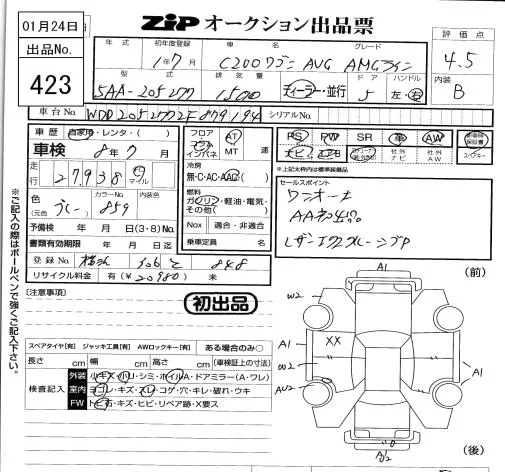 01月24日
出品No.
423
ZIP オークション出品票
年式 初年度登録 車名 グレード
1年7月 C200ワゴン AVG AMGライン
型式 排気量 ドア ハンドル
5AA-205277 1500 ディーラー・並行 5 左・右
評価点
4.5
内装
B
車台No. WDD2052772F879194 シリアルNo.
車歴 自家用・レンタ・( )
車検 8年7月
走行 27,938 マイル
色 (元色) 859 カラーNo. 内装色
予備検 年 月 日 (3・8) No.
書類有効期限 年 月 日迄
登録No. 306 と 848
リサイクル料金 有(¥20980) 未
フロア コラム インパネ AT MT 速
冷房
無・C・AC・AAC( )
燃料
ガソリン・軽油・電気・その他( )
Nox 適合・非適合
乗車定員 名
PS PW SR 革 AW
ナビ エアB 社外ナビ 社外AW
新車時保証書 スペアキー
※上記太枠内は標準装備品
セールスポイント
ワンオーナー
(注意事項)
初出品
スペアタイヤ[有] ジャッキ工具[有] AWロックキー[有] ある場合のみ○
長さ cm 幅 cm 高さ cm (車検証上の寸法)
検査記入
外装 小キズ・小凹・シミ・ホイルA・ドアミラー(A・ワレ)
室内 ヨゴレ・キズ・スレ・コゲ・穴・キレ・破れ・ウキ
FW トビ石・キズ・ヒビ・リペア跡・X要ス
※ご記入の際はボールペンで強くご記入下さい。
(前)
A1
W2
XX
A1
W2
A1
AU2
A1/2
(後)